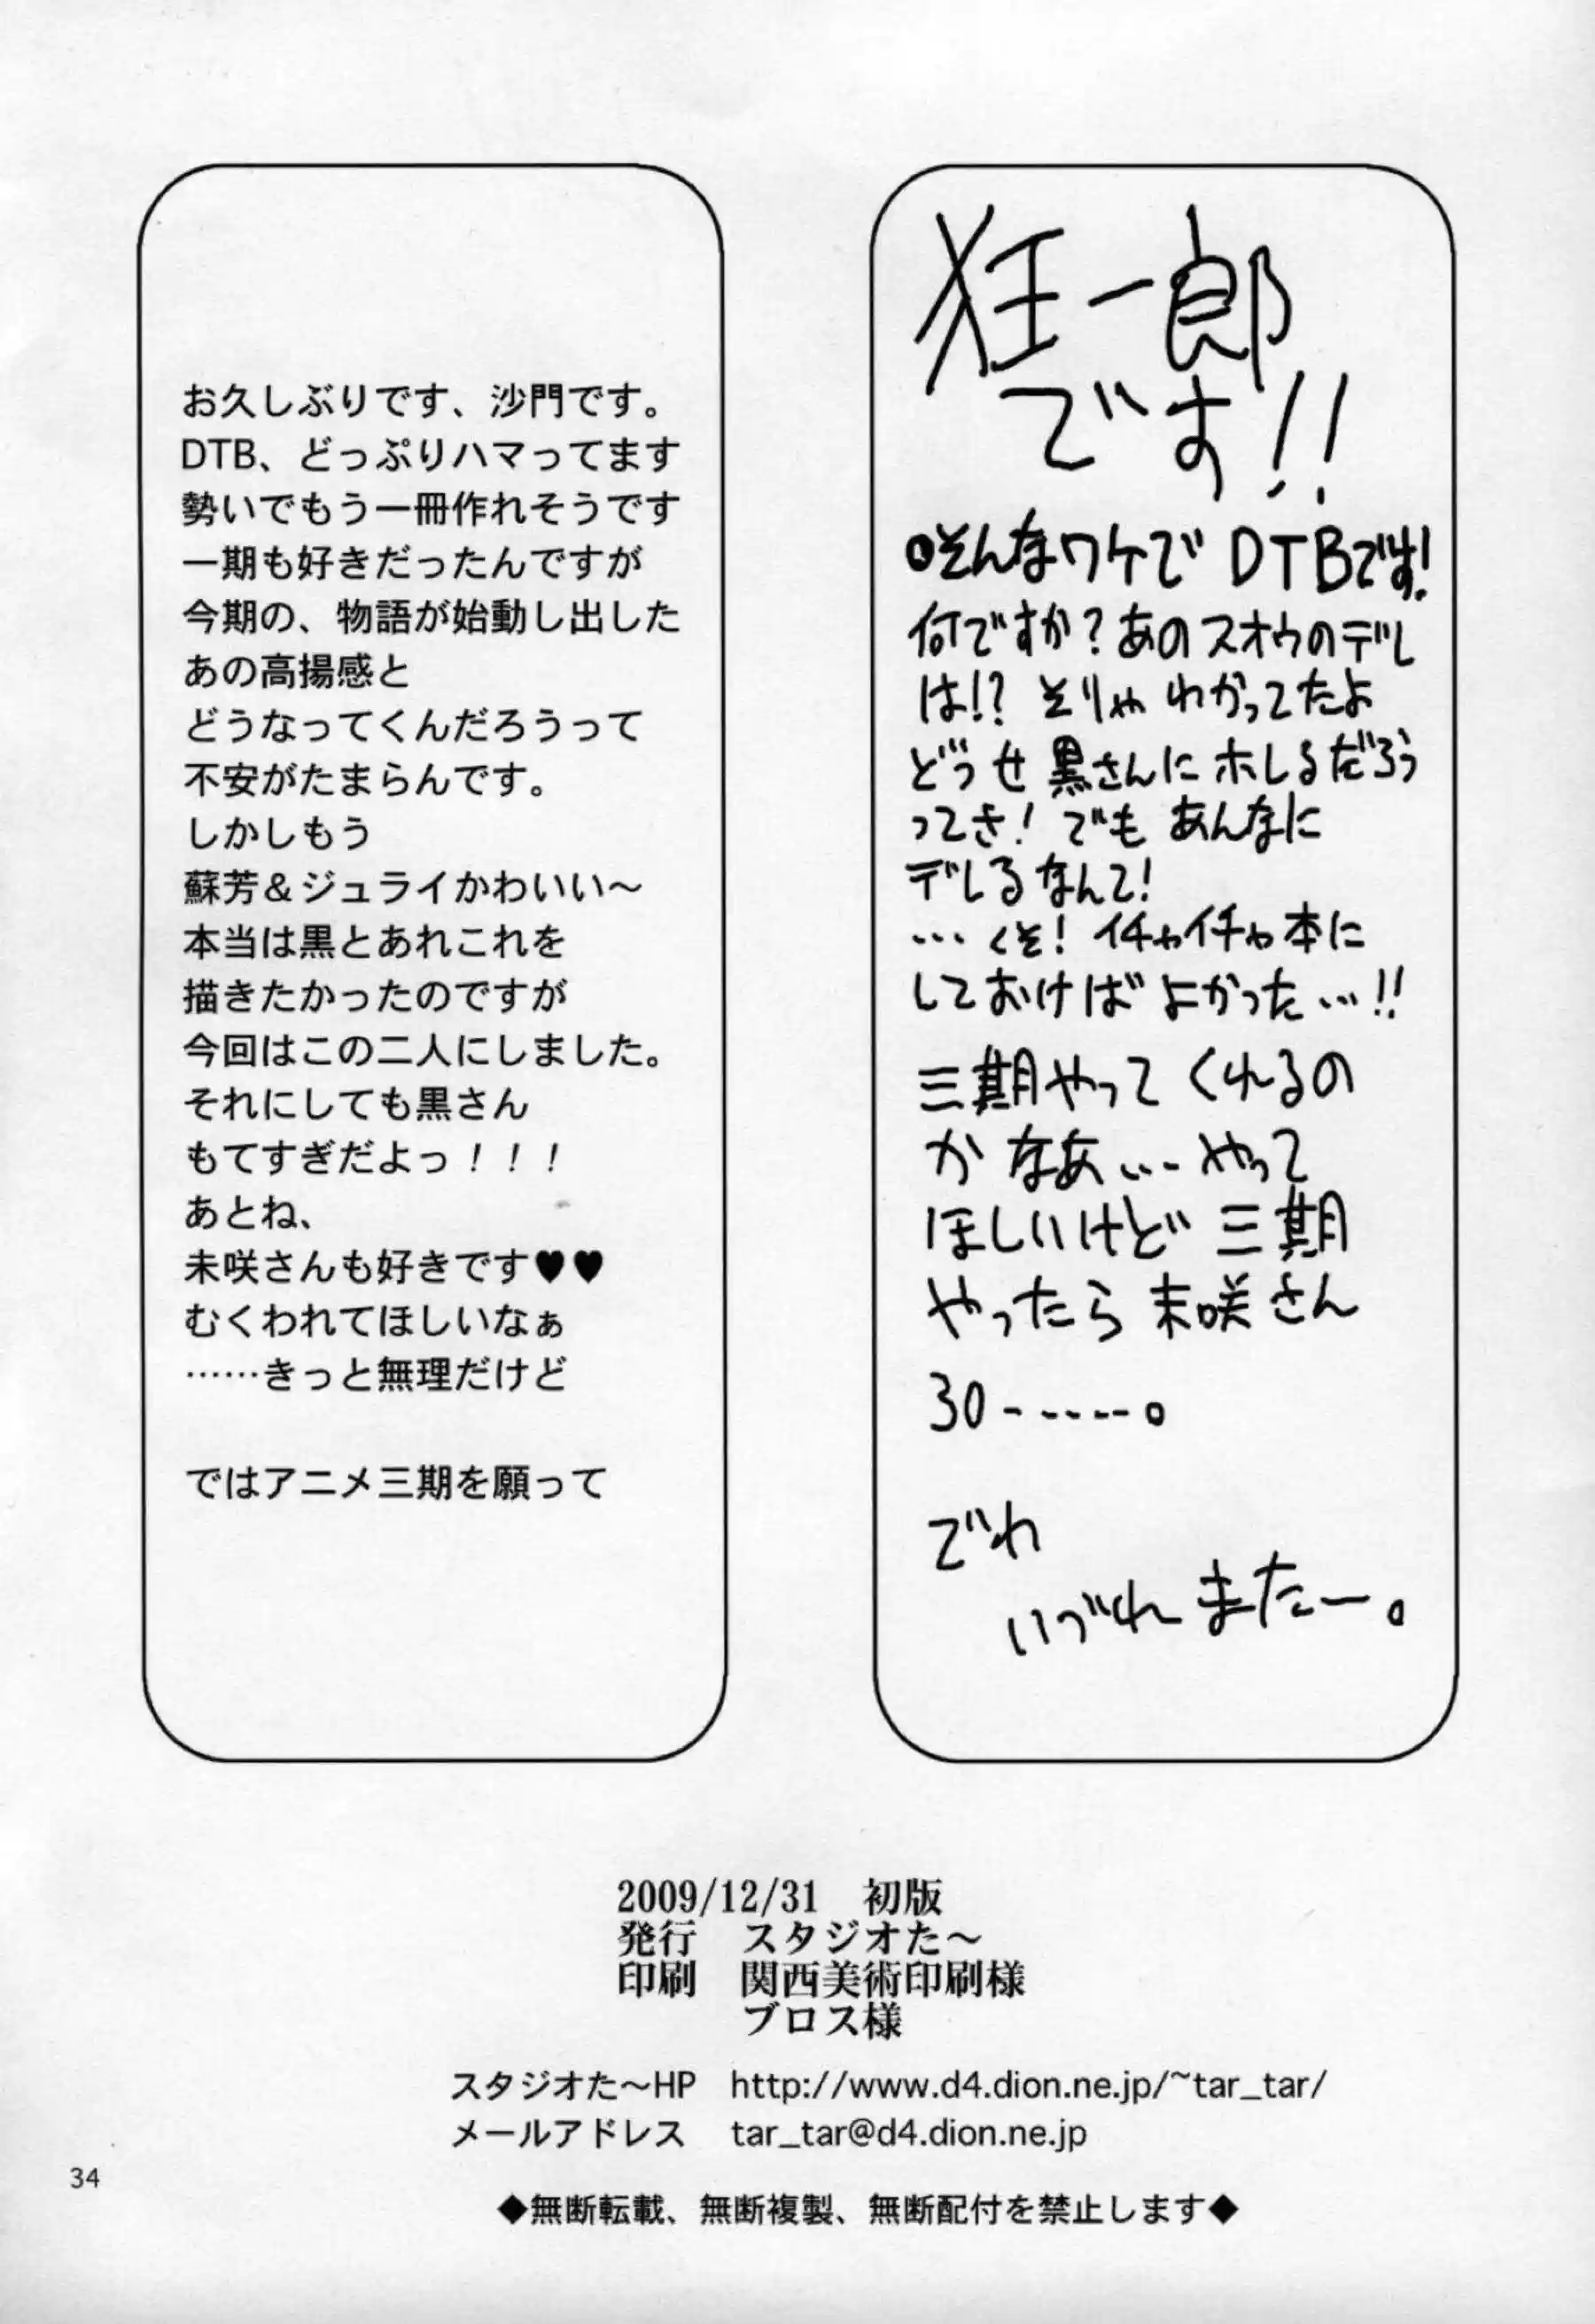 狂一郎
です!!
●そんなワケで DTBです!
何ですか?あのスオウのデレ
は!? そりゃ わかってたよ
どうせ 黒さんに ホレるだろう
ってさ! でも あんなに
デレるなんて!
…くそ! イチャイチャ本に
しておけば よかった…!!
三期やって くれるの
かなあ…やって
ほしいけど 三期
やったら 未咲さん
30------。
でわ
いづれ またー。
お久しぶりです、沙門です。
DTB、どっぷりハマってます
勢いでもう一冊作れそうです
一期も好きだったんですが
今期の、物語が始動し出した
あの高揚感と
どうなってくんだろうって
不安がたまらんです。
しかしもう
蘇芳&ジュライかわいい〜
本当は黒とあれこれを
描きたかったのですが
今回はこの二人にしました。
それにしても黒さん
もてすぎだよっ!!!
あとね、
未咲さんも好きです♥♥
むくわれてほしいなぁ
……きっと無理だけど
ではアニメ三期を願って
2009/12/31 初版
発行 スタジオた〜
印刷 関西美術印刷様
ブロス様
スタジオた〜HP http://www.d4.dion.ne.jp/~tar_tar/
メールアドレス tar_tar@d4.dion.ne.jp
34
◆無断転載、無断複製、無断配付を禁止します◆